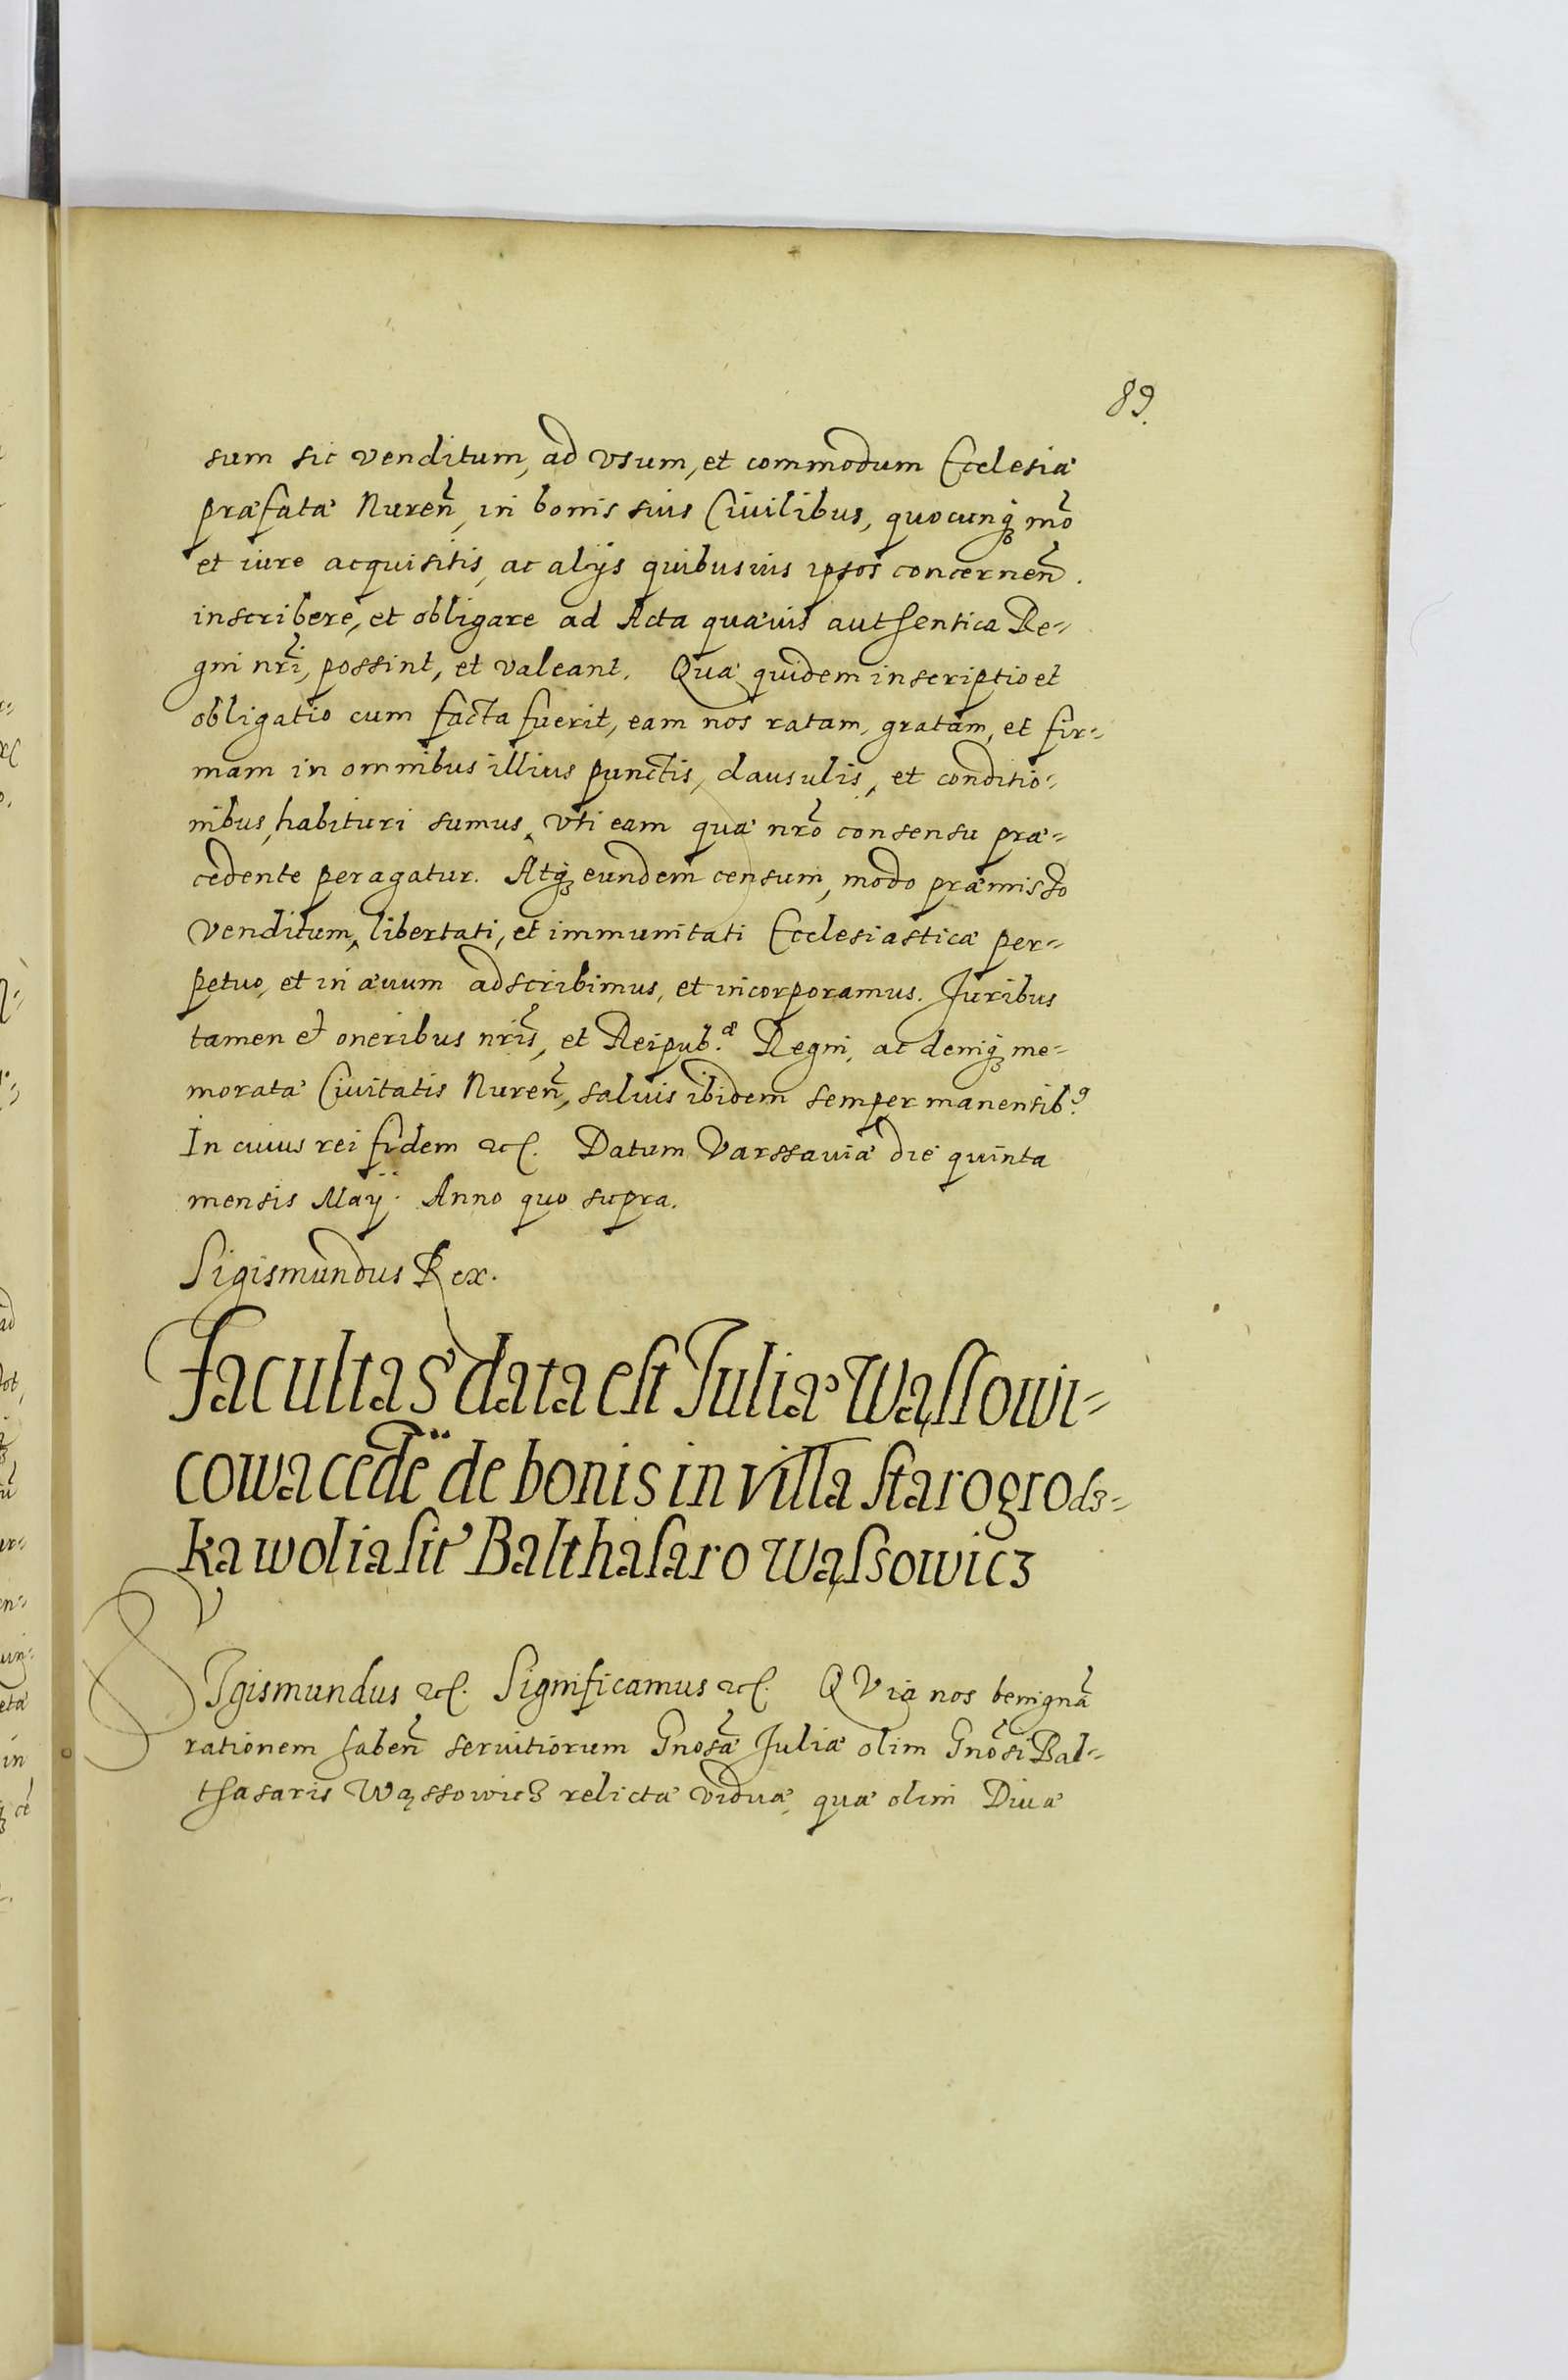 89.
sum sic venditum, ad vsum, et commodum Ecclesiæ
præfatæ Nureñ, in bonis suis Ciuilibus, quocunq₃ mõ
et iure acquisitis, ac alijs quibusuis ipsos concerneñ.
inscribere, et obligare ad Acta quæuis authentica Re=
gni nr̃i, possint, et valeant. Quæ quidem inscriptio et
obligatio cum facta fuerit, eam nos ratam, gratam, et fir=
mam in omnibus illius punctis, clausulis, et conditio=
nibus, habituri sumus, vti eam quæ nr̃o consensu præ=
cedente peragatur. Atq₃ eundem censum, modo præmisso
venditum, libertati, et immunitati Ecclesiasticæ per=
petuo, et in æuum adscribimus, et incorporamus. Juribus
tamen et oneribus nr̃is, et Reipub.æ Regni, ac deniq₃ me=
moratæ Ciuitatis Nureñ, saluis ibidem semper manentib.9
In cuius rei fidem etc. Datum Varssauiæ die quinta
mensis Maij. Anno quo supra.
Sigismundus Rex.
Facultas data est Juliæ Wąssowi=
cowa cedẽ de bonis in villa Starogrods=
ka wolia sit Balthasaro Wąssowicz
SIgismundus etc. Significamus etc. QVia nos benignã
rationem habeñ seruitiorum Gnosã Juliæ olim Gnõsi Bal=
thasaris Wąssowicz relictæ viduæ, quæ olim Diuæ